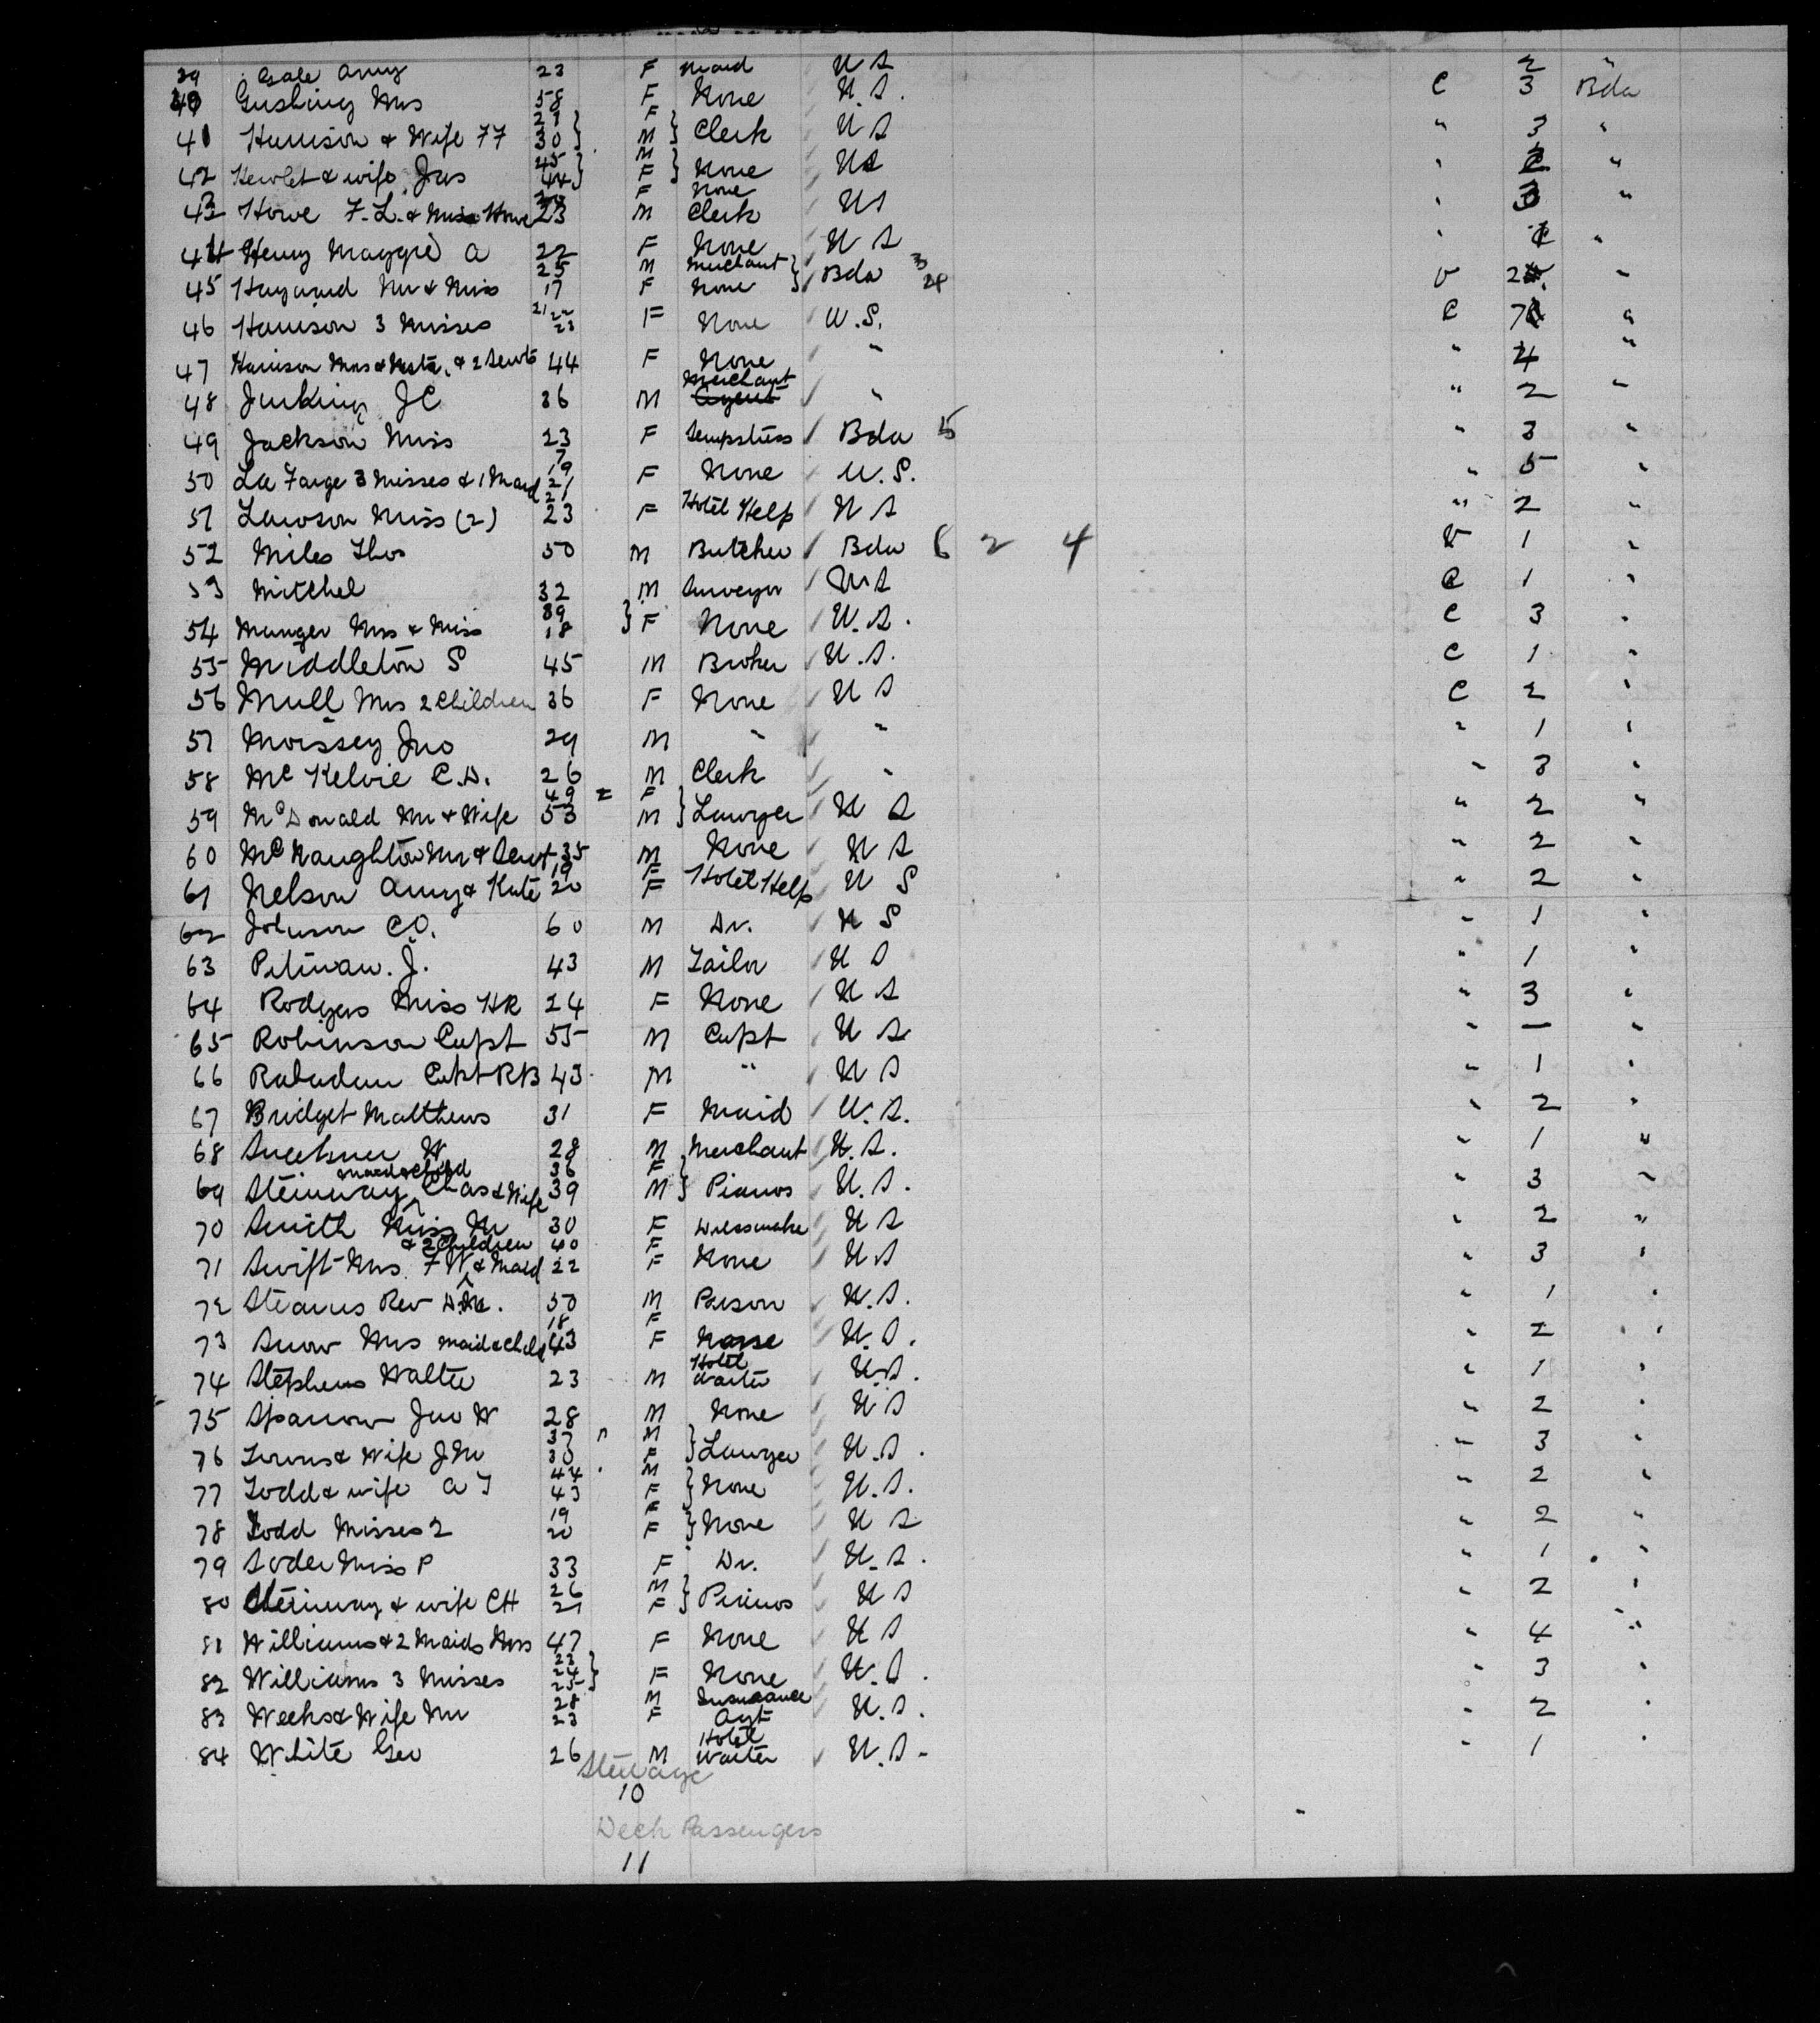 39 Gale Amy 23 F Maid U S 2 "
40 Gushing Mrs 58 F None U.S. C 3 Bda
41 Harrison & Wife 77 30 F M } Clerk U S " 3 "
42 Hewlet & wife Jas 45 44 } M F } None US " "
43 Howe F.L. & Miss Howe 23 F M None Clerk US " 3 "
44 Henry Maggie A 22 F None U S " "
45 Hayward Mr & Miss 25 17 M F Merchant None } Bda "
46 Harrison 3 Misses 21 22 23 F None U.S. C 7 "
47 Harrison Mrs & & 2 Servts 44 F None " " 4 "
48 Jenkins JC 36 M Merchant " " 2 "
49 Jackson Miss 23 F Sempstress Bda 5 " 3 "
50 La Farge 3 Misses & 1 Maid 7 19 21 21 F None U.S. " 5 "
51 Lawson Miss (2) 23 F Hotel Help U S " 2 "
52 Miles Thos 50 M Butcher Bda 6 2 4 1 "
53 Mitchel 32 M Surveyor US C 1 "
54 Munger Mrs & Miss 39 18 } F None U.S. C 3 "
55 Middleton S 45 M Broker U.S. C 1 "
56 Mull Mrs 2 Children 36 F None U S C 2 "
57 Morissey Jno 29 M " " " 1 "
58 McKelvie C.D. 26 M Clerk " " 3 "
59 McDonald Mr & Wife 49 53 F M } Lawyer U S " 2 "
60 McNaughton Mr & Servt 35 M None U S " 2 "
61 Nelson Amy & Kate 19 20 F F Hotel Help U S " 2 "
62 Johnson C.O. 60 M Dr. U S " 1 "
63 Pitman. J. 43 M Tailor U S " 1 "
64 Rodgers Miss HR 24 F None U S " 3 "
65 Robinson Capt 55 M Capt U S " — "
66 Capt RB 43 M " U S " 1 "
67 Bridget Matthews 31 F Maid U.S. " 2 "
68 W 28 M Merchant U.S. " 1 "
maid & child
69 Steinway Chas & Wife 36 39 F M } Pianos U.S. " 3 "
70 Smith Miss M 30 F Dressmaker U S " 2 "
& 2 Children
71 Swift Mrs F W & Maid 40 22 F F None U S " 3 "
72 Stearns Rev 50 M Parson U.S. " 1 "
73 Snow Mrs maid & child 18 43 F F None U.S. " 2 "
74 Stephens Walter 23 M Hotel Waiter U.S. " 1 "
75 Sparrow Jno W 28 M None U S " 2 "
76 Towns & Wife J M 37 30 M F } Lawyer U.S. " 3 "
77 Todd & wife A J 44 43 M F } None U.S. " 2 "
78 Todd Misses 2 19 20 F F } None U S " 2 "
79 Soder Miss P 33 F Dr. U.S. " 1 "
80 Steinway & wife CH 26 21 M F } Pianos U S " 2 "
81 Williams & 2 Maids Mrs 47 F None U S " 4 "
82 Williams 3 Misses 23 24 25 } F None U.S. " 3 "
83 Weeks & Wife Mr 28 23 M F Insurance Agt U.S. " 2 "
84 White Geo 26 M Hotel Waiter U.S. " 1 "
Steerage
10
Deck Passengers
11